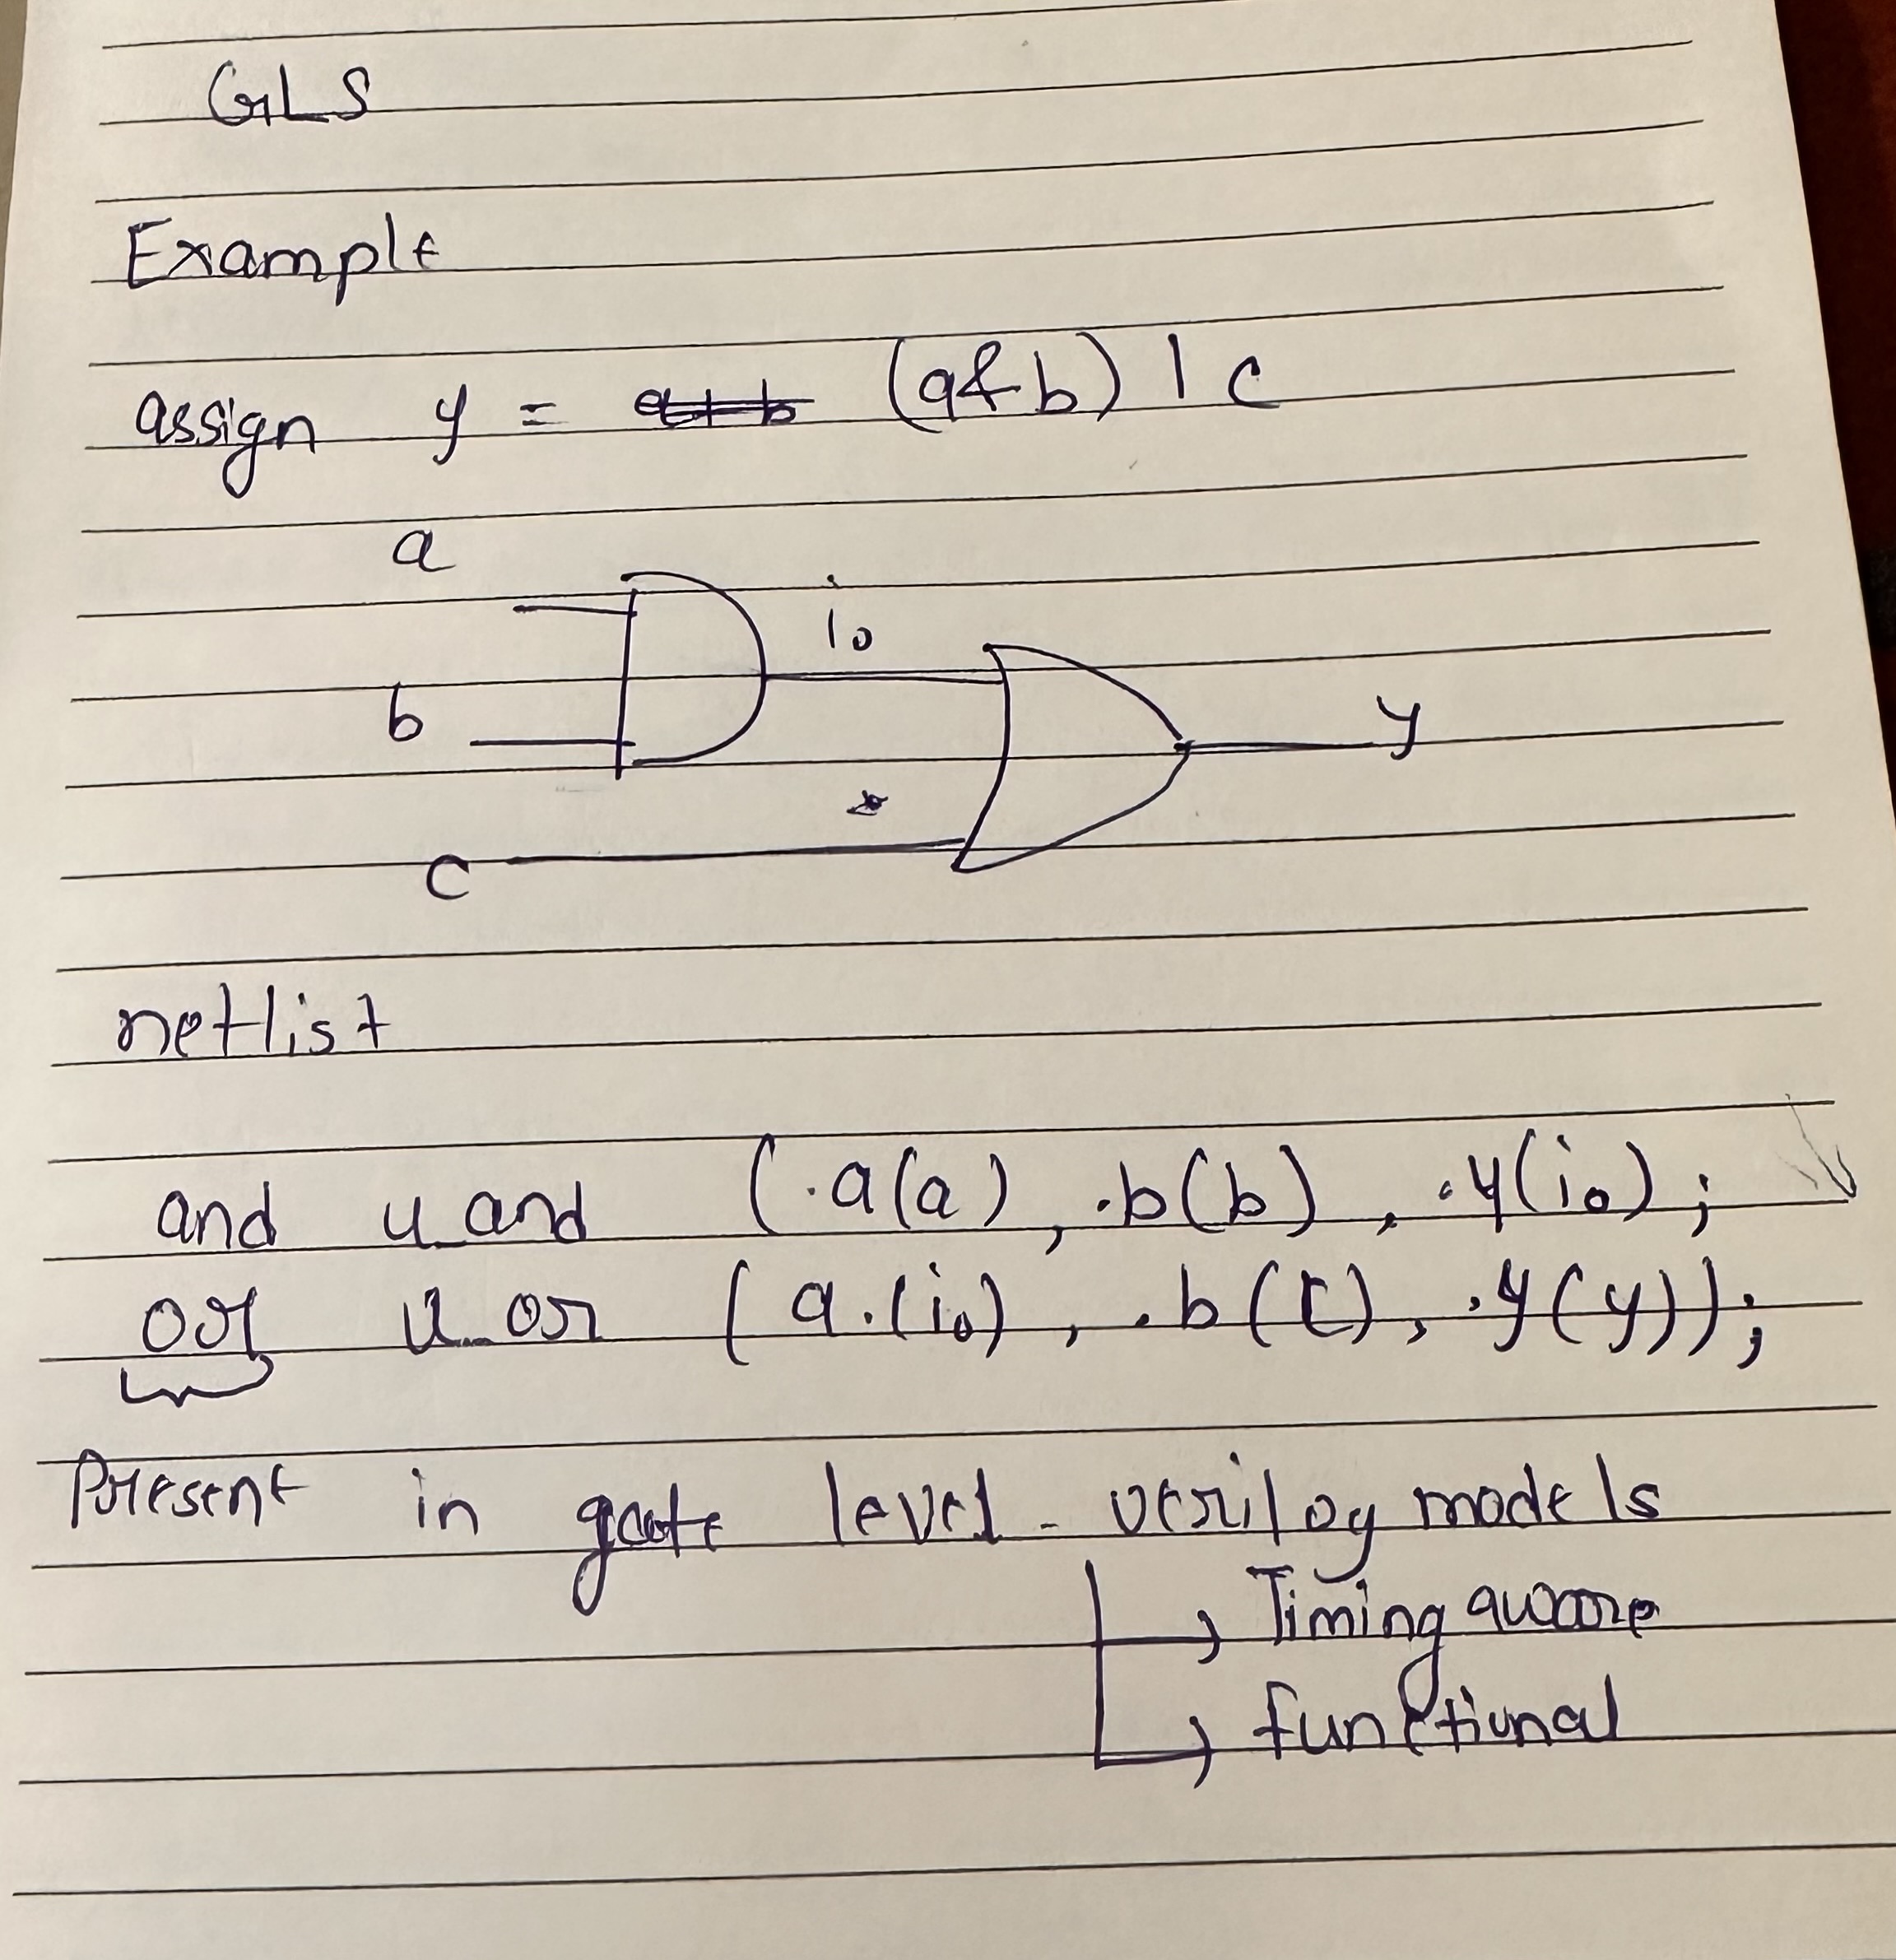 GLS
Example
assign y = (a&b) | c
a
i0
b
y
c
netlist
and u_and (.a(a), .b(b), .y(i0);
or u_or (a.(i0), .b(c), .y(y));
Present in gate level - verilog models
Timing aware
functional